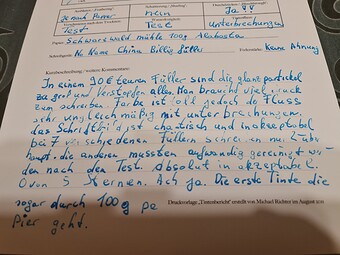 Je nach Papier
nein
Ja!!
Test
Test
Unterbrechungen
Papier: Schwarzwald mühle 100g Alabaska
No Name China Billig Füller
Federstärke: Keine Ahnung
Kurzbeschreibung / weitere Kommentare:
In einem 10€ teuren Füller sind die glanzpartikel
zu groß und verstopfen alles. Man braucht viel druck
zum schreiben. Farbe ist cool jedoch do Fluss
sehr ungleichmäßig mit unterbrechungen.
das Schriftbild ist chaotisch und inakzeptabel
bei 7 verschiedenen Füllern schreien nur 2 über
haupt. die anderen mussten aufwendig gereinigt wer
den nach den Test. Absolut inakzeptabel.
0 von 5 Sternen. Ach ja. Die erste Tinte die
sogar durch 100g Pa
Pier geht.
Druckvorlage „Tintenbericht" erstellt von Michael Richter im August 2011